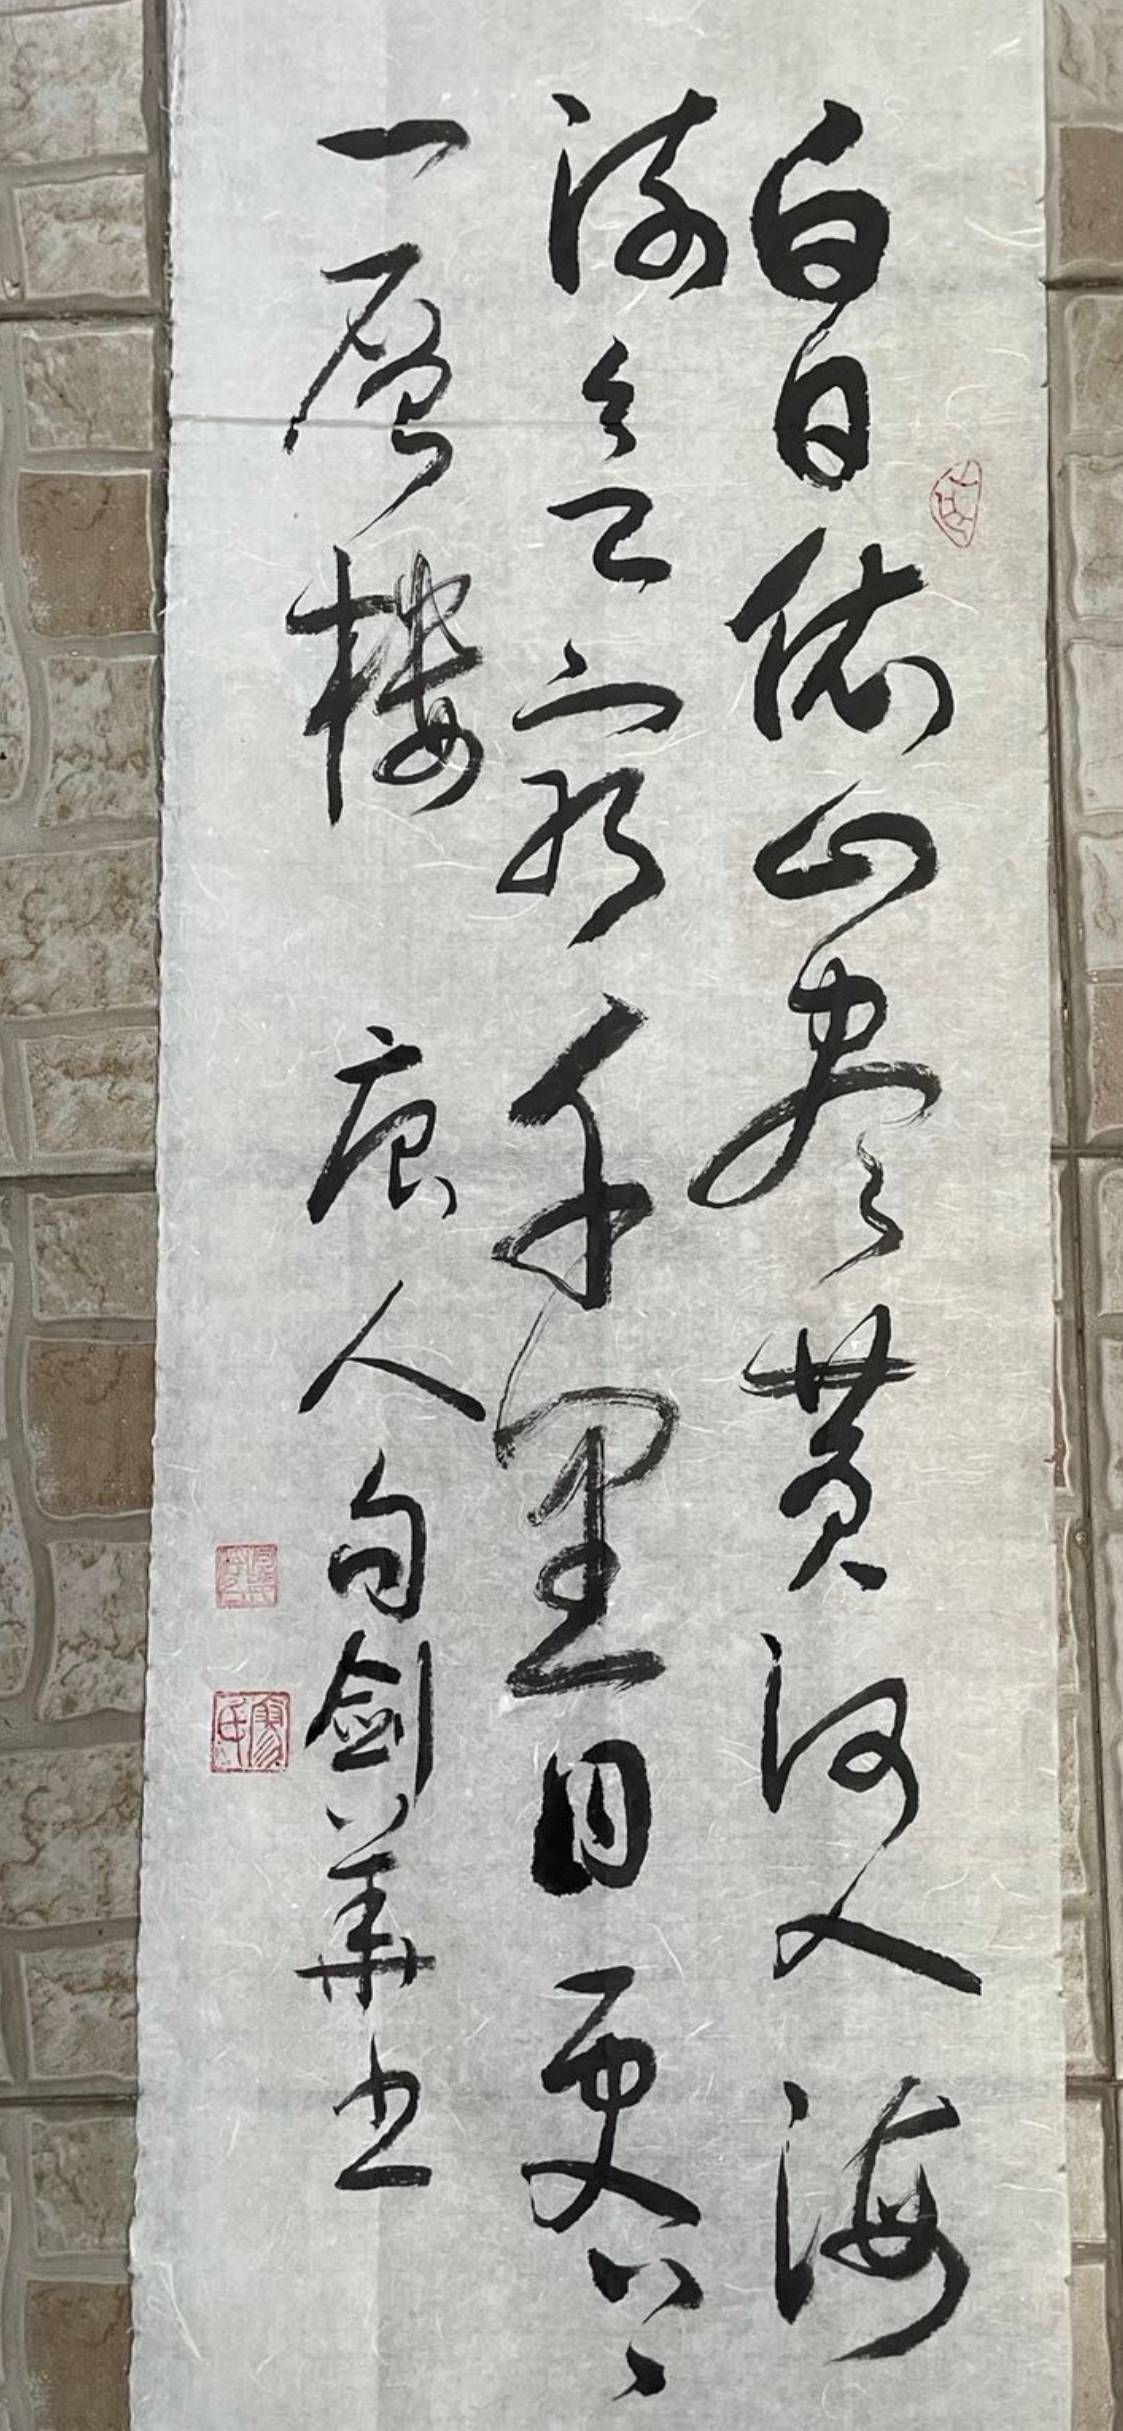 白日依山尽黄河入海
流欲穷千里目更上
一层楼 唐人句剑华书